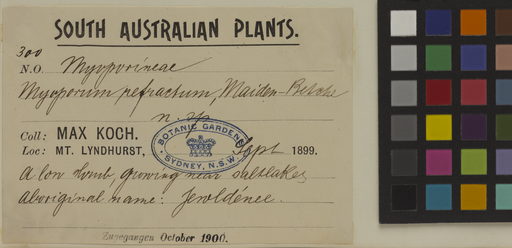 SOUTH AUSTRALIAN PLANTS.
300
N.O. Myoporineae
Myoporum refractum, Maiden-Betche
n. sp.
Coll: MAX KOCH.
BOTANIC GARDENS
SYDNEY, N.S.W
Loc: MT. LYNDHURST, Sept 1899.
A low shrub growing near saltlakes
Aboriginal name:
Eingegangen October 1900.